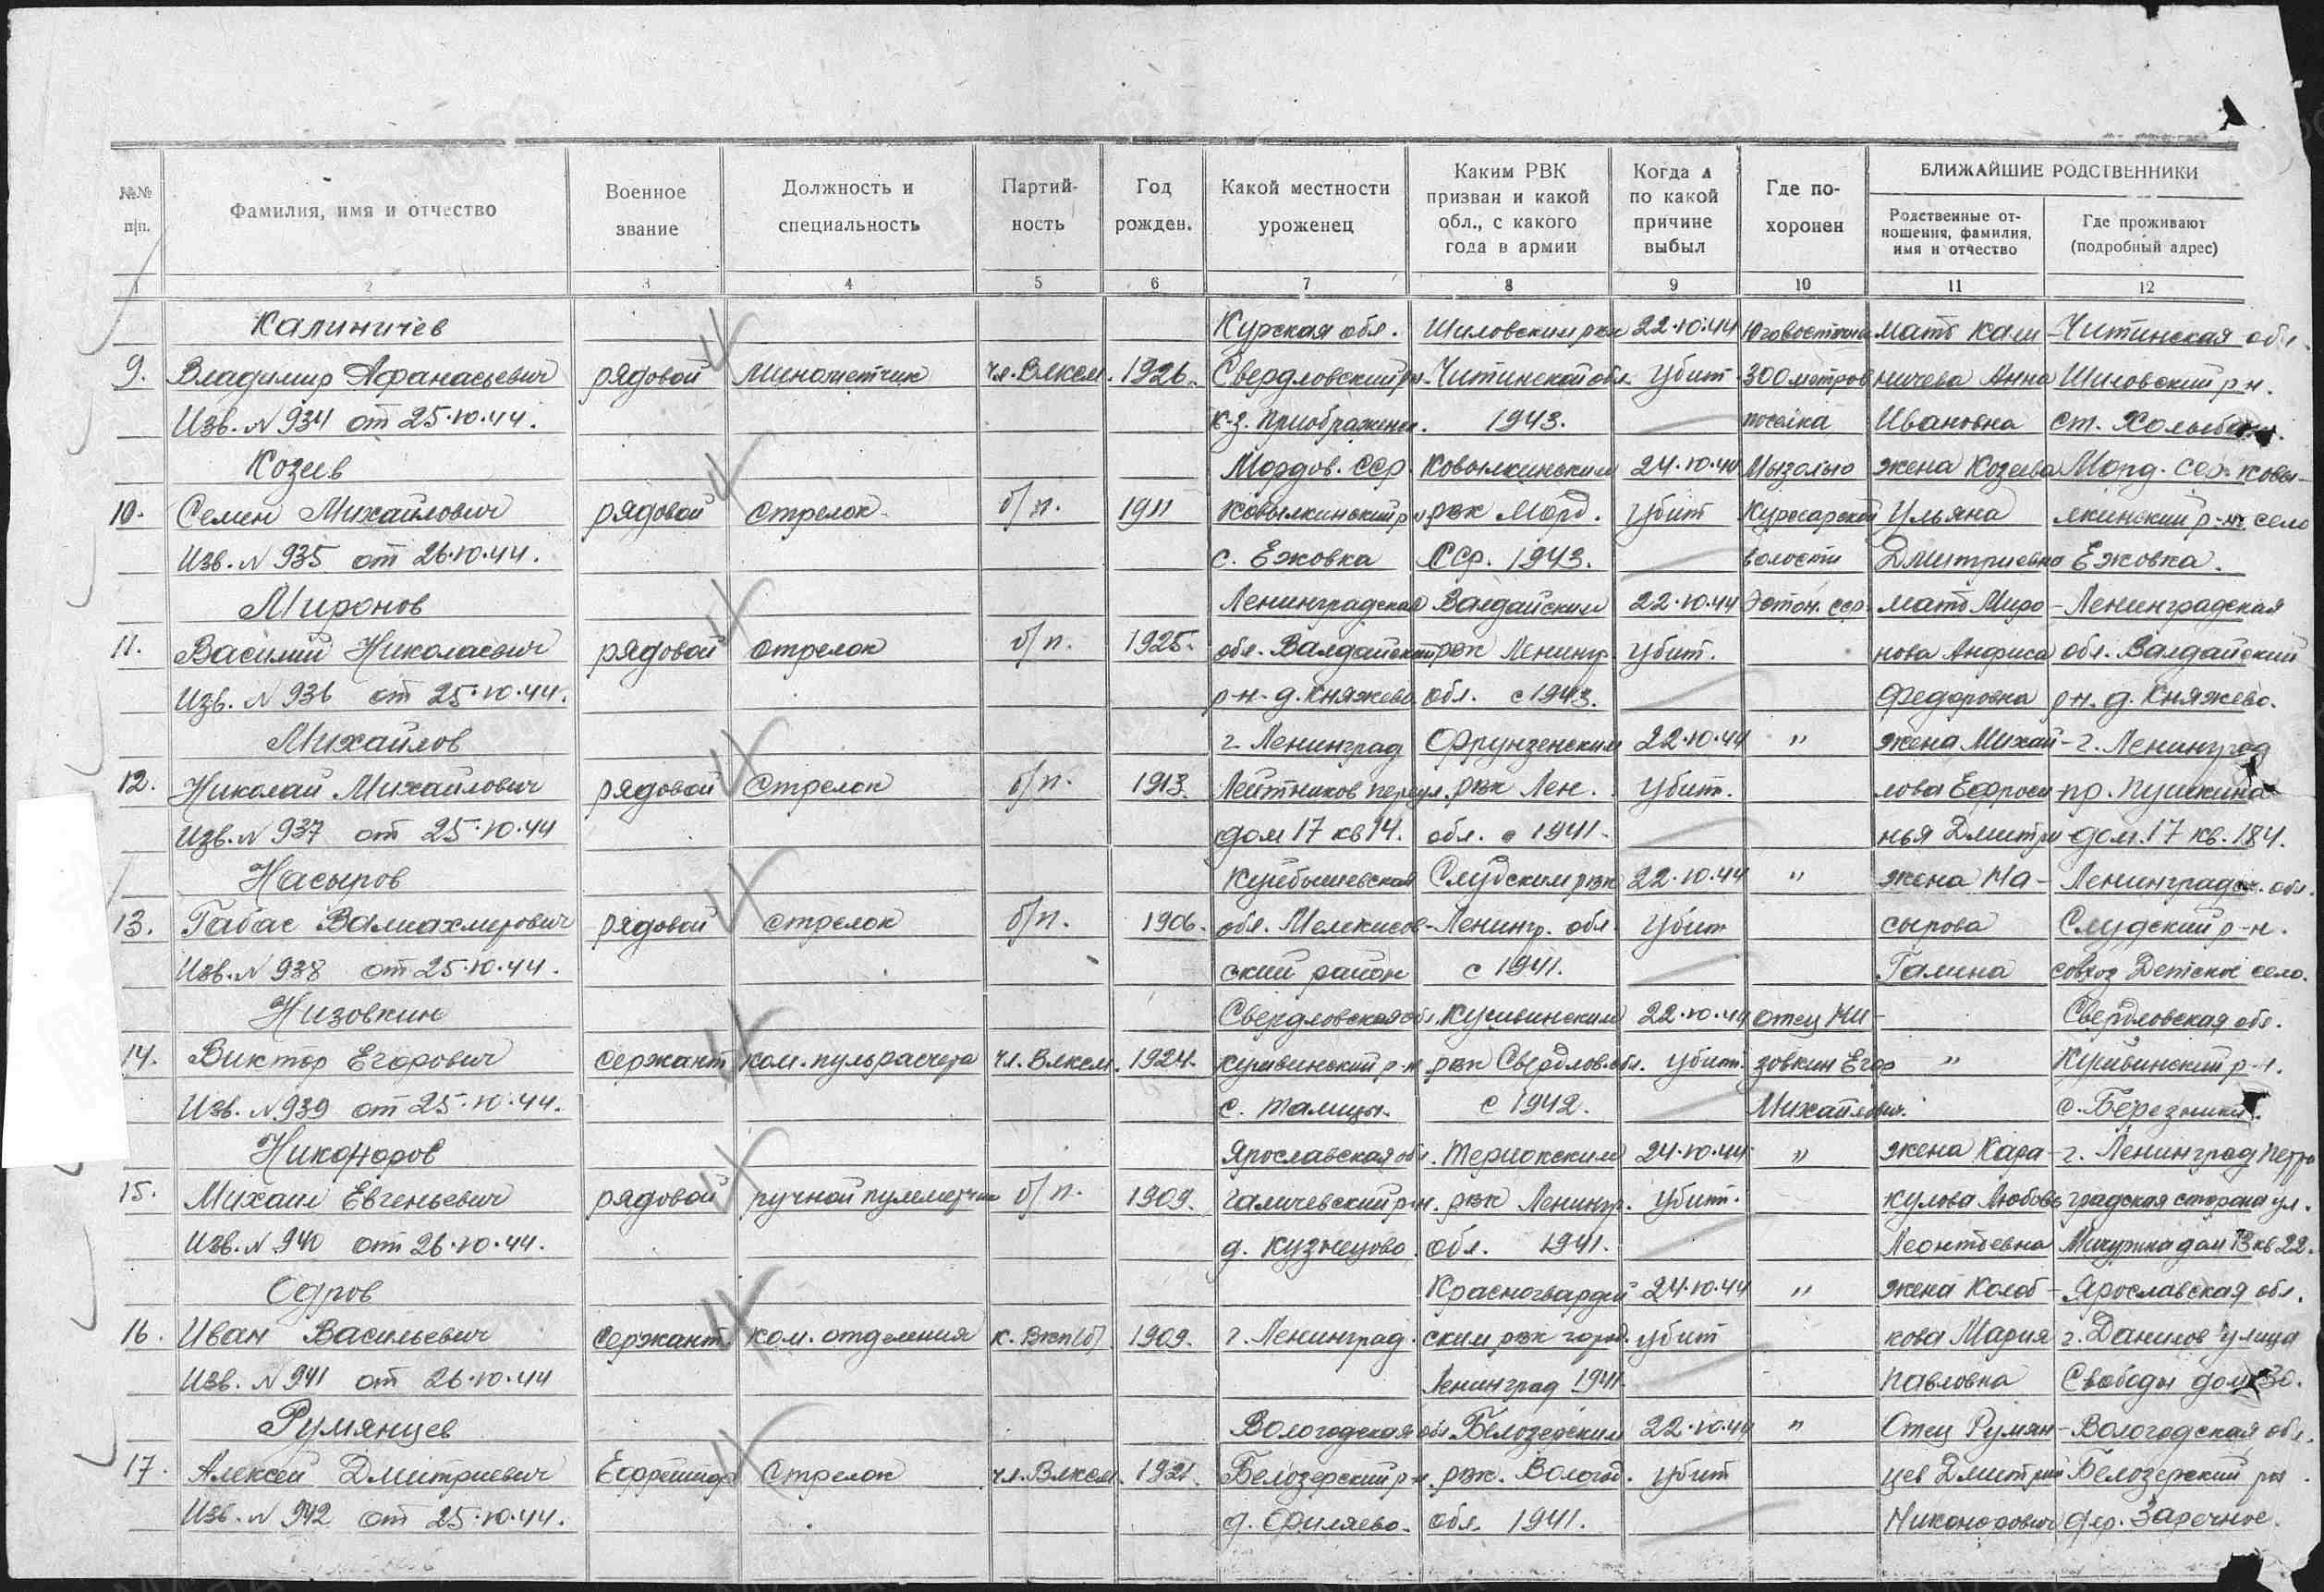 №№ п|п.
Фамилия, имя и отчество
Военное звание
Должность и специальность
Партий-ность
Год рожден.
Какой местности уроженец
Каким РВК призван и какой обл., с какого года в армии
Когда и по какой причине выбыл
Где по-хоронен
БЛИЖАЙШИЕ РОДСТВЕННИКИ
Родственные от-ношения, фамилия, имя и отчество
Где проживают (подробный адрес)
1 2 3 4 5 6 7 8 9 10 11 12
Калиничев Курская обл. Шиловским рвк 22.10.44 мать Кали- Читинская обл.
9. Владимир Афанасьевич рядовой минометчик чл. Влксм. 1926. Свердловский р-н. Читинской обл. убит 300 метров ничева Анна Шиловский р-н.
Изв. N 934 от 25.10.44. к-з. 1943. поселка Ивановна ст.
Козев Мордов. ССР Ковылкинским 24.10.44 жена Козева Морд. сср. Ковы-
10. Семен Михайлович рядовой стрелок б/п. 1911 Ковылкинский р-н рвк Морд. убит Ульяна лкинский р-н село
Изв. N 935 от 26.10.44. с. Ежовка ССР. 1943. волости Дмитриевна Ежовка.
Миронов Ленинградская Валдайским 22.10.44 Эстон. сср. мать Миро- Ленинградская
11. Василий Николаевич рядовой стрелок б/п. 1925. обл. Валдайский рвк Ленингр. убит. нова Анфиса обл. Валдайский
Изв. N 936 от 25.10.44. р-н. д. Княжево. обл. с 1943. Федоровна р-н. д. Княжево.
Михайлов г. Ленинград Фрунзенским 22.10.44 " жена Михай- г. Ленинград
12. Николай Михайлович рядовой стрелок б/п. 1913. переул. рвк Лен. убит. лова Ефроси- пр. Пушкина
Изв. N 937 от 25.10.44 дом 17 кв 14. обл. с 1941. нья Дмитри- дом. 17 кв. 184.
Насыров Куйбышевская Слудским рвк 22.10.44 " жена На- Ленинградск. обл.
13. Габас рядовой стрелок б/п. 1906. обл. Мелекесов- Ленингр. обл. убит сырова Слудский р-н.
Изв. N 938 от 25.10.44. ский район с 1941. Галина совхоз Детское село.
Низовкин Свердловская обл. Кушвинским 22.10.44 отец Ни- Свердловская обл.
14. Виктор Егорович сержант ком. пульрасчета чл. Влксм. 1924. Кушвинский р-н рвк Свердлов. обл. убит. зовкин Егор " Кушвинский р-н.
Изв. N 939 от 25.10.44. с. Талицы. с 1942. Михайлович. с. Березники.
Никоноров Ярославская обл. Териокским 24.10.44 " жена Кара- г. Ленинград Петро
15. Михаил Евгеньевич рядовой ручной пулеметчик б/п. 1909. Галичевский р-н. рвк Ленингр. убит. кулова Любовь градская сторона ул.
Изв. N 940 от 26.10.44. д. Кузнецово обл. 1941. Леонтьевна дом 13 кв 22.
Одров Красногвардей- 24.10.44 " жена Колоб- Ярославская обл.
16. Иван Васильевич сержант. ком. отделения к. Вкп(б) 1909. г. Ленинград. ским рвк город. убит кова Мария г. Данилов улица
Изв. N 941 от 26.10.44 Ленинград 1941. Павловна Свободы дом 30.
Румянцев Вологодская обл. Белозерским 22.10.44 " Отец Румян- Вологодская обл.
17. Алексей Дмитриевич Ефрейтор стрелок чл. Влксм. 1921. Белозерский р-н. рвк. Волог. убит цев Дмитрий Белозерский р-н.
Изв. N 942 от 25.10.44. д. Филяево. обл. 1941. Никонорович дер. Заречное.